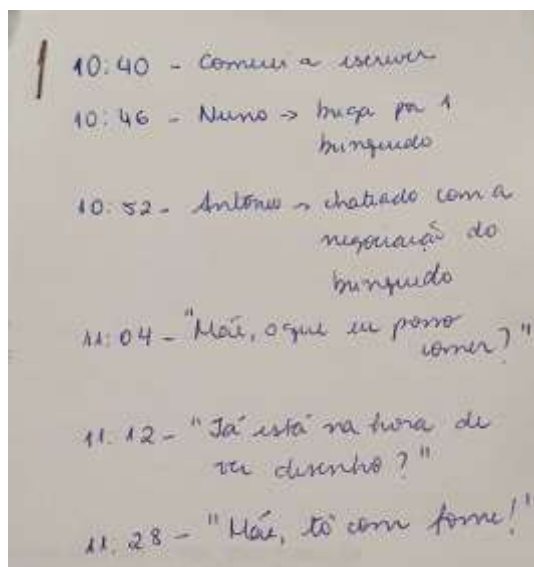 10:40 - Comecei a escrever
10:46 - Nuno → briga por 1
brinquedo
10:52 - Antônio → chateado com a
negociação do
brinquedo
11:04 - "Mãe, o que eu posso
comer?"
11:12 - "Já está na hora de
ver desenho?"
11:28 - "Mãe, tô com fome!"